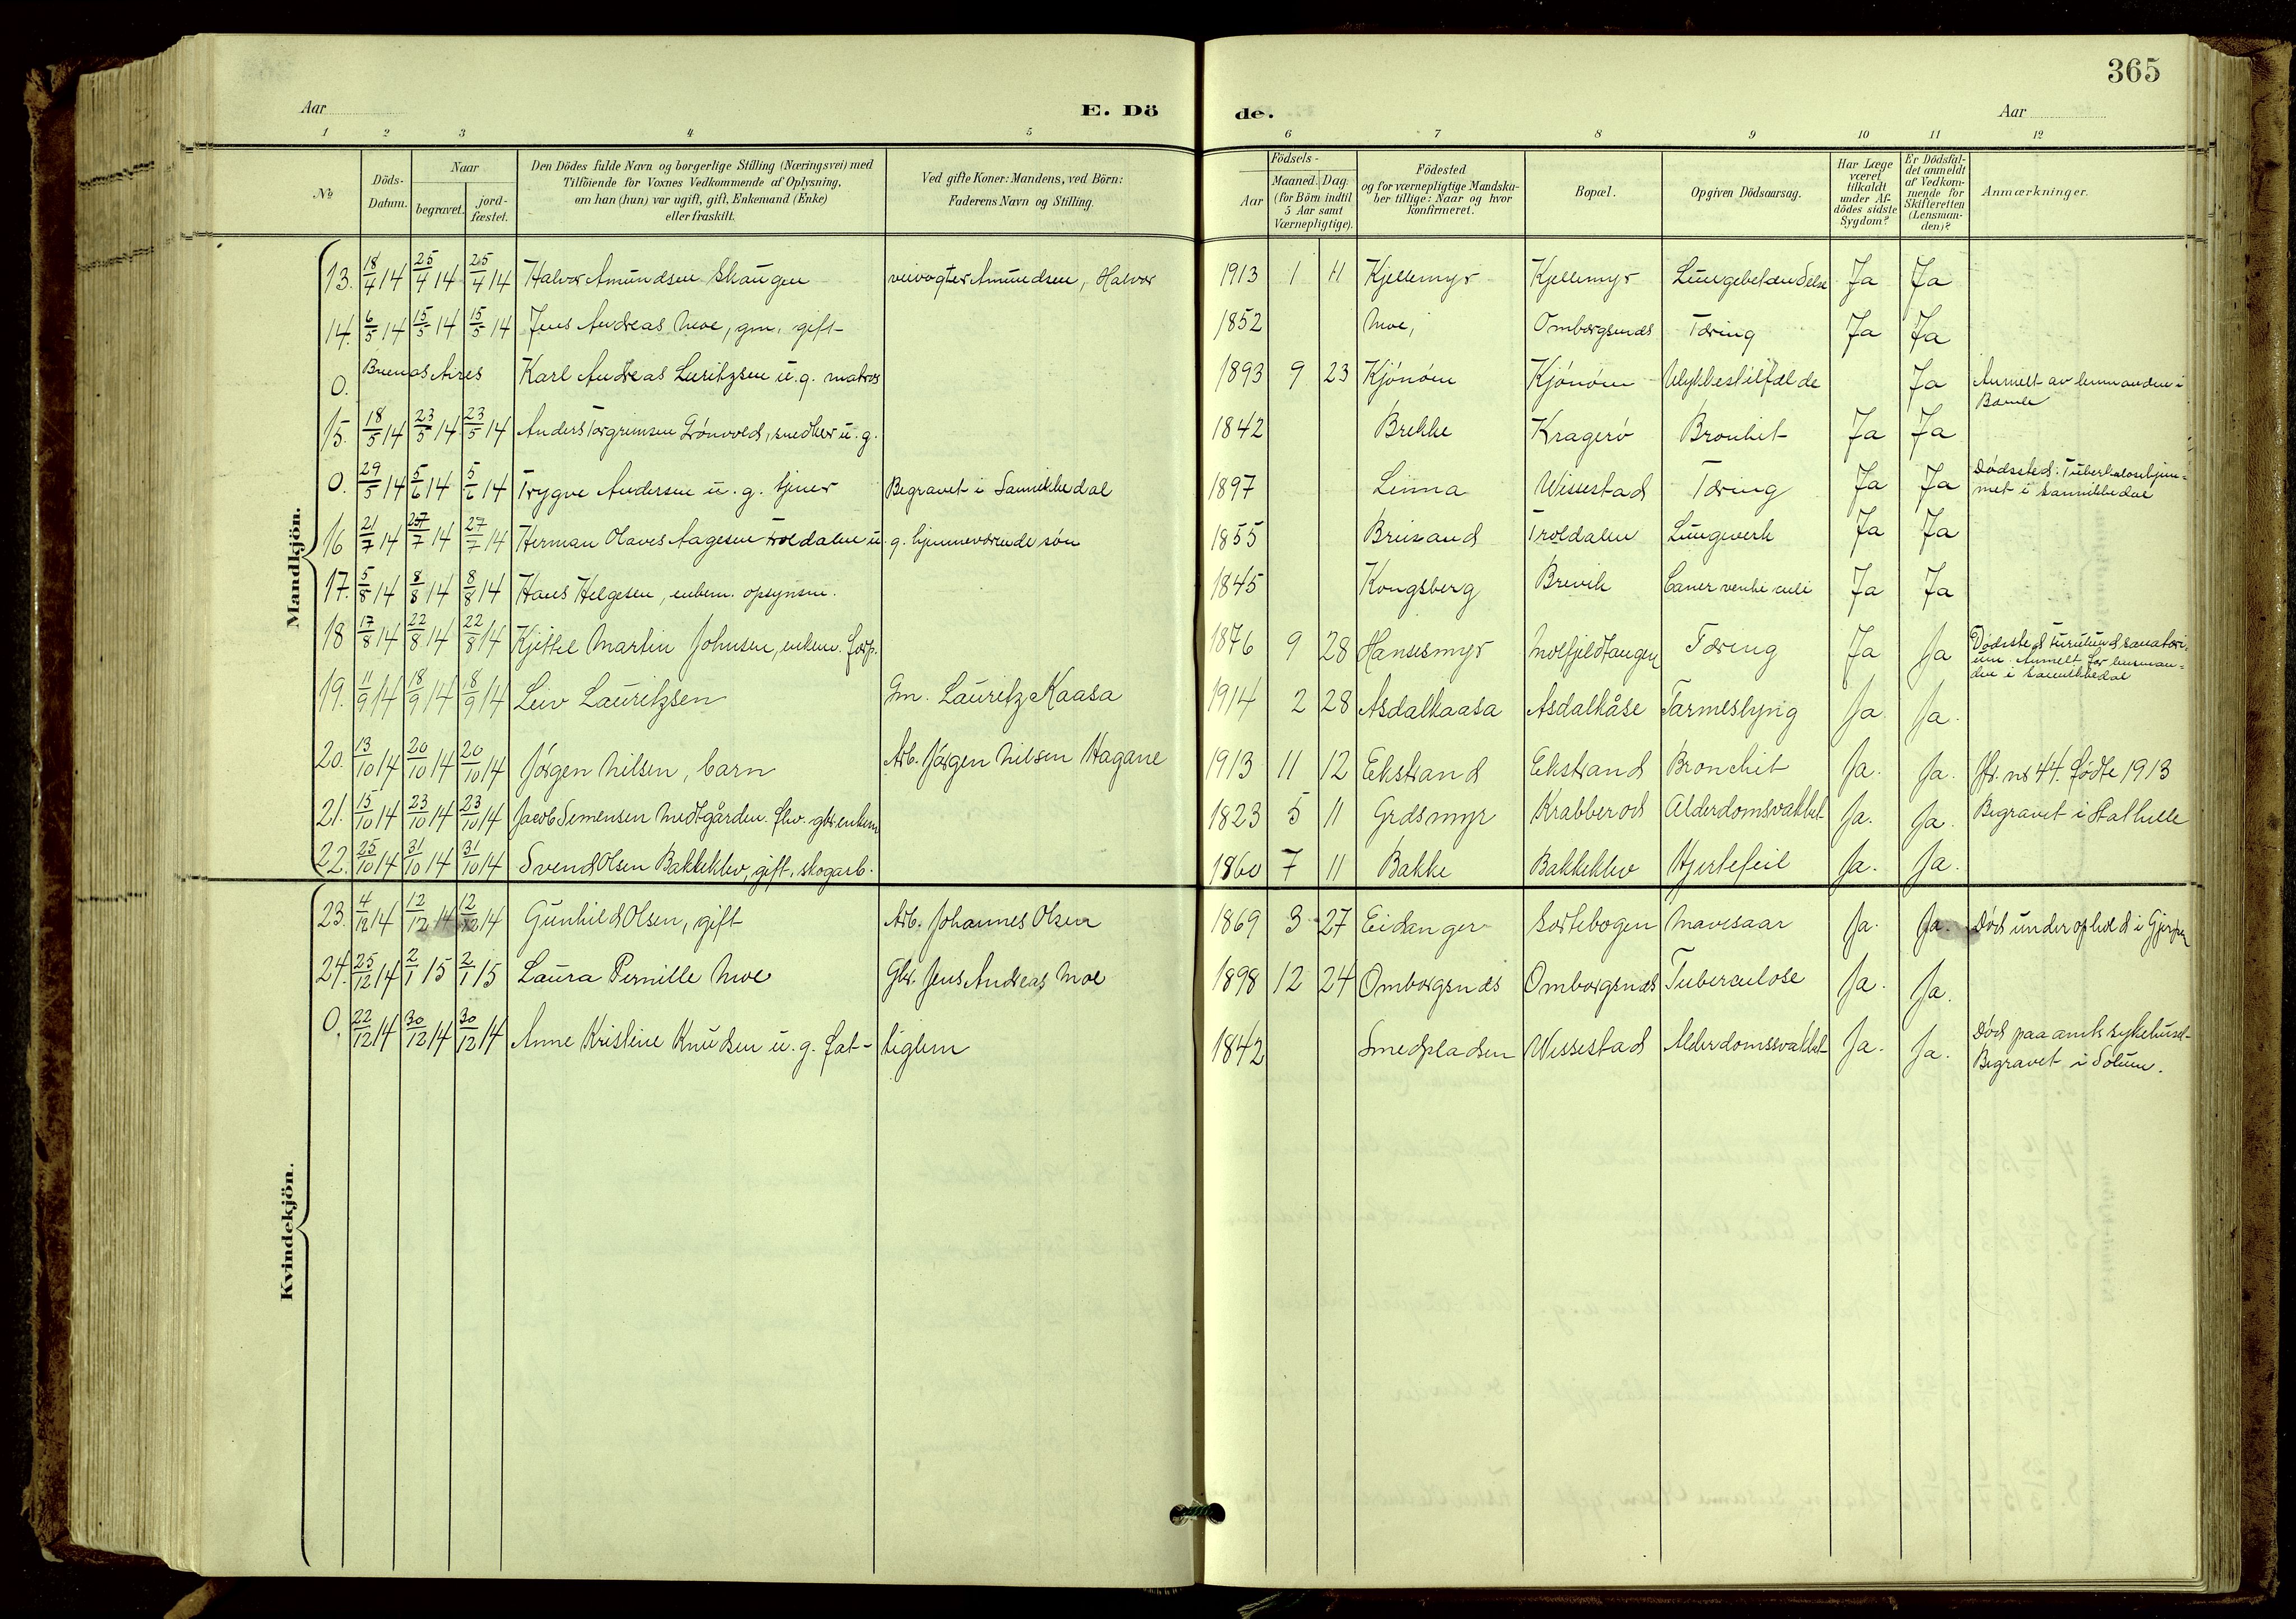 365
Aar
E. Dö
de.
Aar
1 2 3 4 5 6 7 8 9 10 11 12
№
Döds-Datum.
Naar
begravet.
jord-fæstet.
Den Dödes fulde Navn og borgerlige Stilling (Næringsvei) med
Tilföiende for Voxnes Vedkommende af Oplysning,
om han (hun) var ugift, gift, Enkemand (Enke)
eller fraskilt.
Ved gifte Koner: Mandens, ved Börn:
Faderens Navn og Stilling.
Födsels-
Aar
Maaned. Dag.
(for Börn indtil
5 Aar samt
Værnepligtige).
Födested
og for værnepligtige Mandska-
ber tillige: Naar og hvor
konfirmeret.
Bopæl.
Opgiven Dödsaarsag.
Har Læge
været
tilkaldt
under Af-
dödes sidste
Sygdom?
Er Dödsfal-
det anmeldt
af Vedkom-
mende for
Skifteretten
(Lensman-
den)?
Anmærkninger.
Mandkjön.
13. 18/4 14 25/4 14 25/4 14 Halvor Amundsen Skaugen veivogter Amundsen, Halvor 1913 1 11 Kjellemyr Kjellemyr Lungebetændelse Ja Ja
14. 6/5 14 15/5 14 15/5 14 Jens Andreas Moe, gm. gift 1852 Moe, Omborgsnæs Tæring Ja Ja
0. Buenos Aires Karl Andreas Luritzsen u. g. matros 1893 9 23 Kjönöen Kjönöen Ulykkestilfælde Ja Anmelt av lensmanden i
Bamle
15. 18/5 14 23/5 14 23/5 14 Anders Torgrimsen Grönvold, snedker u. g. 1842 Brekke Kragerö Bronkit Ja Ja
0. 29/5 14 5/6 14 5/6 14 Trygve Andersen u. g. tjener Begravet i Sannikkedal 1897 Linna Wissestad Tæring Ja Ja Dödssted: Tuberkulosehjem-
met i Sannikkedal
16 21/7 14 27/7 14 27/7 14 Herman Olaves Aagesen Troldalen u. g. hjemmeværende sön 1855 Breisand Troldalen Lungeverk Ja Ja
17. 5/8 14 8/8 14 8/8 14 Hans Helgesen, enkem. opsynsm. 1845 Kongsberg Brevik Cancer ventriculi Ja Ja
18 17/8 14 22/8 14 22/8 14 Kjittel Martin Johnsen, enkem. forp. 1876 9 28 Hansesmyr Molfjeldtangen Tæring Ja Ja Dödssted Furulund sanatori-
um. Anmelt for lensman-
den i Sannikkedal
19. 11/9 14 18/9 14 18/9 14 Leiv Lauritzsen Gm. Lauritz Kaasa 1914 2 28 Asdalkaasa Asdalkåse Tarmeslyng Ja Ja.
20. 13/10 14 20/10 14 20/10 14 Jörgen Nilsen, barn Arb. Jörgen Nilsen Hagane 1913 11 12 Ekstrand Ekstrand Bronchit Ja. Ja. Jfr. nr 44. födte 1913
21. 15/10 14 23/10 14 23/10 14 Jacob Semensen Medtgården. fhv. gbr. enkem 1823 5 11 Grdsmyr Krabberöd Alderdomsvakhet Ja. Ja. Begravet i Stathelle
22. 25/10 14 31/10 14 31/10 14 Svend Olsen Bakkeklev, gift, skogarb. 1860 7 11 Bakke Bakkeklev Hjertefeil Ja. Ja.
Kvindekjön.
23. 4/12 14 12/12 14 12/12 14 Gunhild Olsen, gift Arb. Johannes Olsen 1869 3 27 Eidanger Sortebogen Mavesaar Ja. Ja. Död under ophold i Gjerpen
24. 25/12 14 2/1 15 2/1 15 Laura Pernille Moe Gbr. Jens Andreas Moe 1898 12 24 Omborgsnæs Omborgsnæs Tuberculose Ja. Ja.
0. 22/12 14 30/12 14 30/12 14 Anne Kristine Knudsen u. g. fat- tiglem 1842 Smedpladsen Wissestad Alderdomssvakhet Ja. Ja. Död paa amtssykehuset
Begravet i Solum.